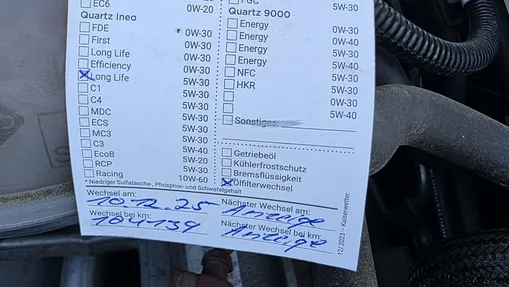 EC6 0W-20
Quartz Ineo
FDE 0W-30
First 0W-30
Long Life 0W-30
Efficiency 0W-30
Long Life 5W-30
C1 5W-30
C4 5W-30
MDC 5W-30
ECS 5W-30
MC3 5W-30
C3 5W-40
EcoB 5W-20
RCP 5W-30
Racing 10W-60
* Niedriger Sulfatasche-, Phosphor- und Schwefelgehalt
Wechsel am:
10.12.25
Wechsel bei km:
104139
5W-30
Quartz 9000
Energy 0W-30
Energy 0W-40
Energy 5W-30
Energy 5W-40
NFC 5W-30
HKR 5W-30
5W-30
0W-30
5W-40
Sonstiges:
Getriebeöl
Kühlerfrostschutz
Bremsflüssigkeit
Ölfilterwechsel
Nächster Wechsel am:
Anzeige
Nächster Wechsel bei km:
Anzeige
12/2023 – Kaiserwetter